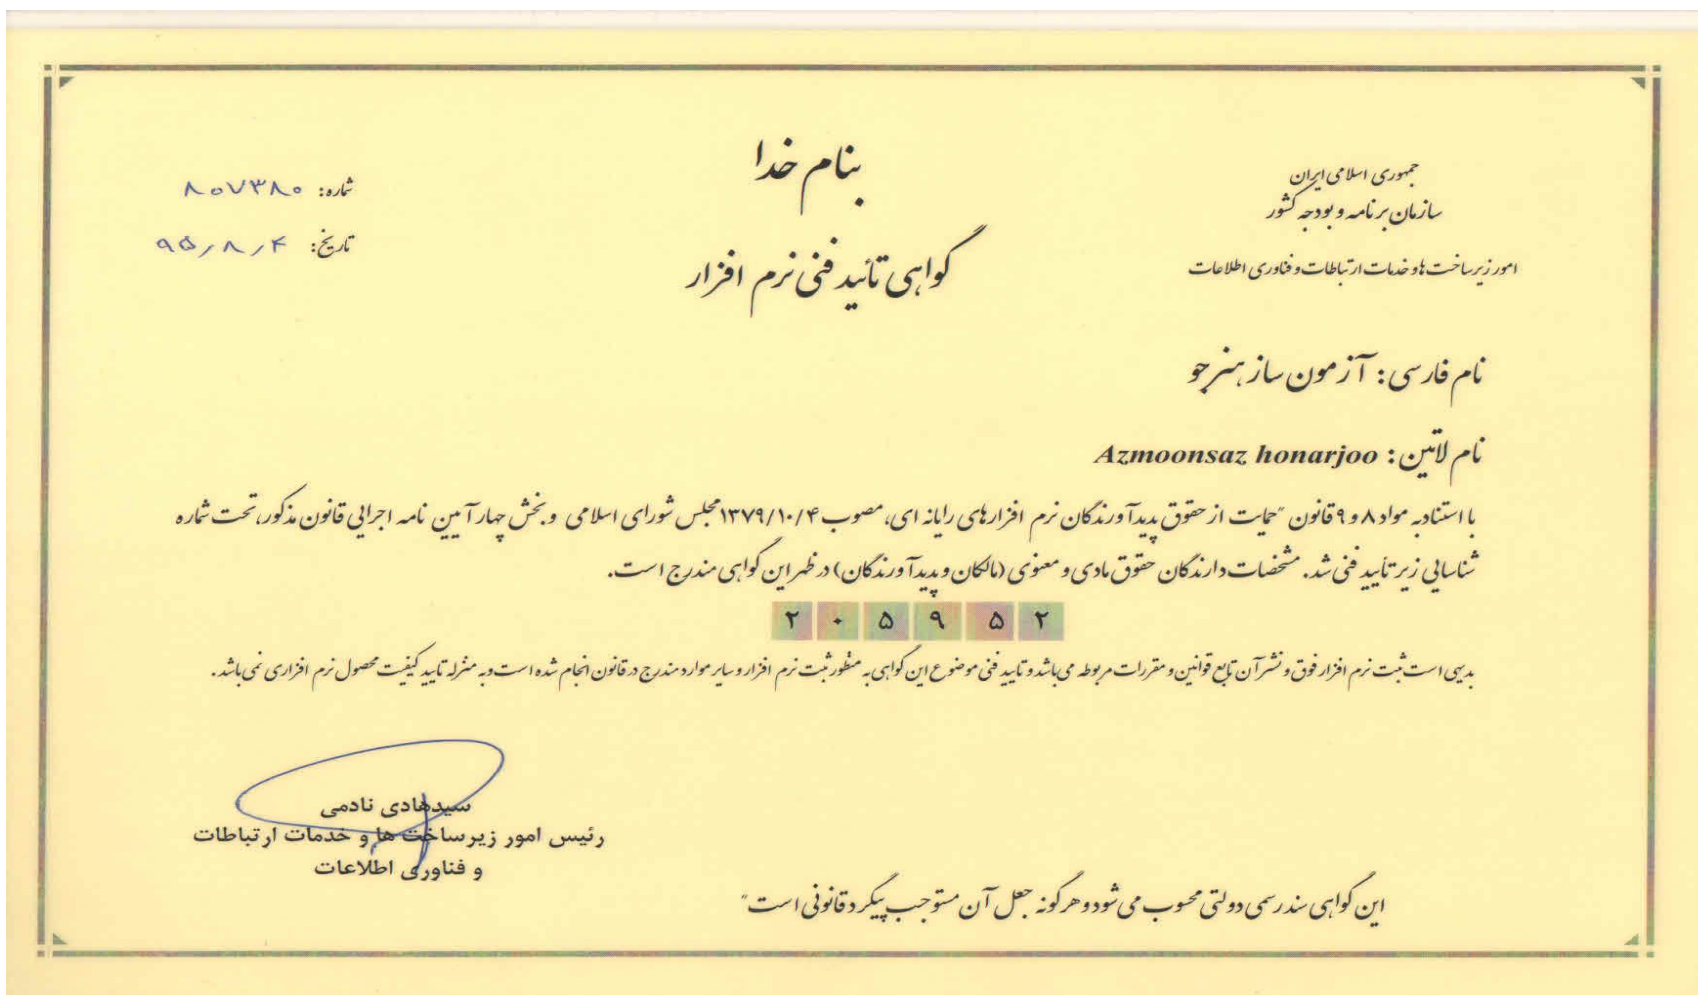 بنام خدا
جمهوری اسلامی ایران
سازمان برنامه و بودجه کشور
امور زیرساخت ها و خدمات ارتباطات و فناوری اطلاعات
شماره: ۸۰۷۳۸۰
تاریخ: ۹۵/۸/۴
گواهی تائید فنی نرم افزار
نام فارسی: آزمون ساز هنرجو
نام لاتین: Azmoonsaz honarjoo
با استناد به مواد ۸ و ۹ قانون "حمایت از حقوق پدیدآورندگان نرم افزارهای رایانه ای، مصوب ۱۳۷۹/۱۰/۴ مجلس شورای اسلامی و بخش چهار آیین نامه اجرایی قانون مذکور، تحت شماره
شناسایی زیر تأیید فنی شد. مشخصات دارندگان حقوق مادی و معنوی (مالکان و پدیدآورندگان) در ظهر این گواهی مندرج است.
۲۰۵۹۵۲
بدیهی است ثبت نرم افزار فوق و نشر آن تابع قوانین و مقررات مربوطه می باشد و تایید فنی موضوع این گواهی به منظور ثبت نرم افزار و سایر موارد مندرج در قانون انجام شده است و به منزله تایید کیفیت محصول نرم افزاری نمی باشد.
سیدهادی نادمی
رئیس امور زیرساخت ها و خدمات ارتباطات
و فناوری اطلاعات
این گواهی سند رسمی دولتی محسوب می شود و هرگونه جعل آن مستوجب پیگرد قانونی است"